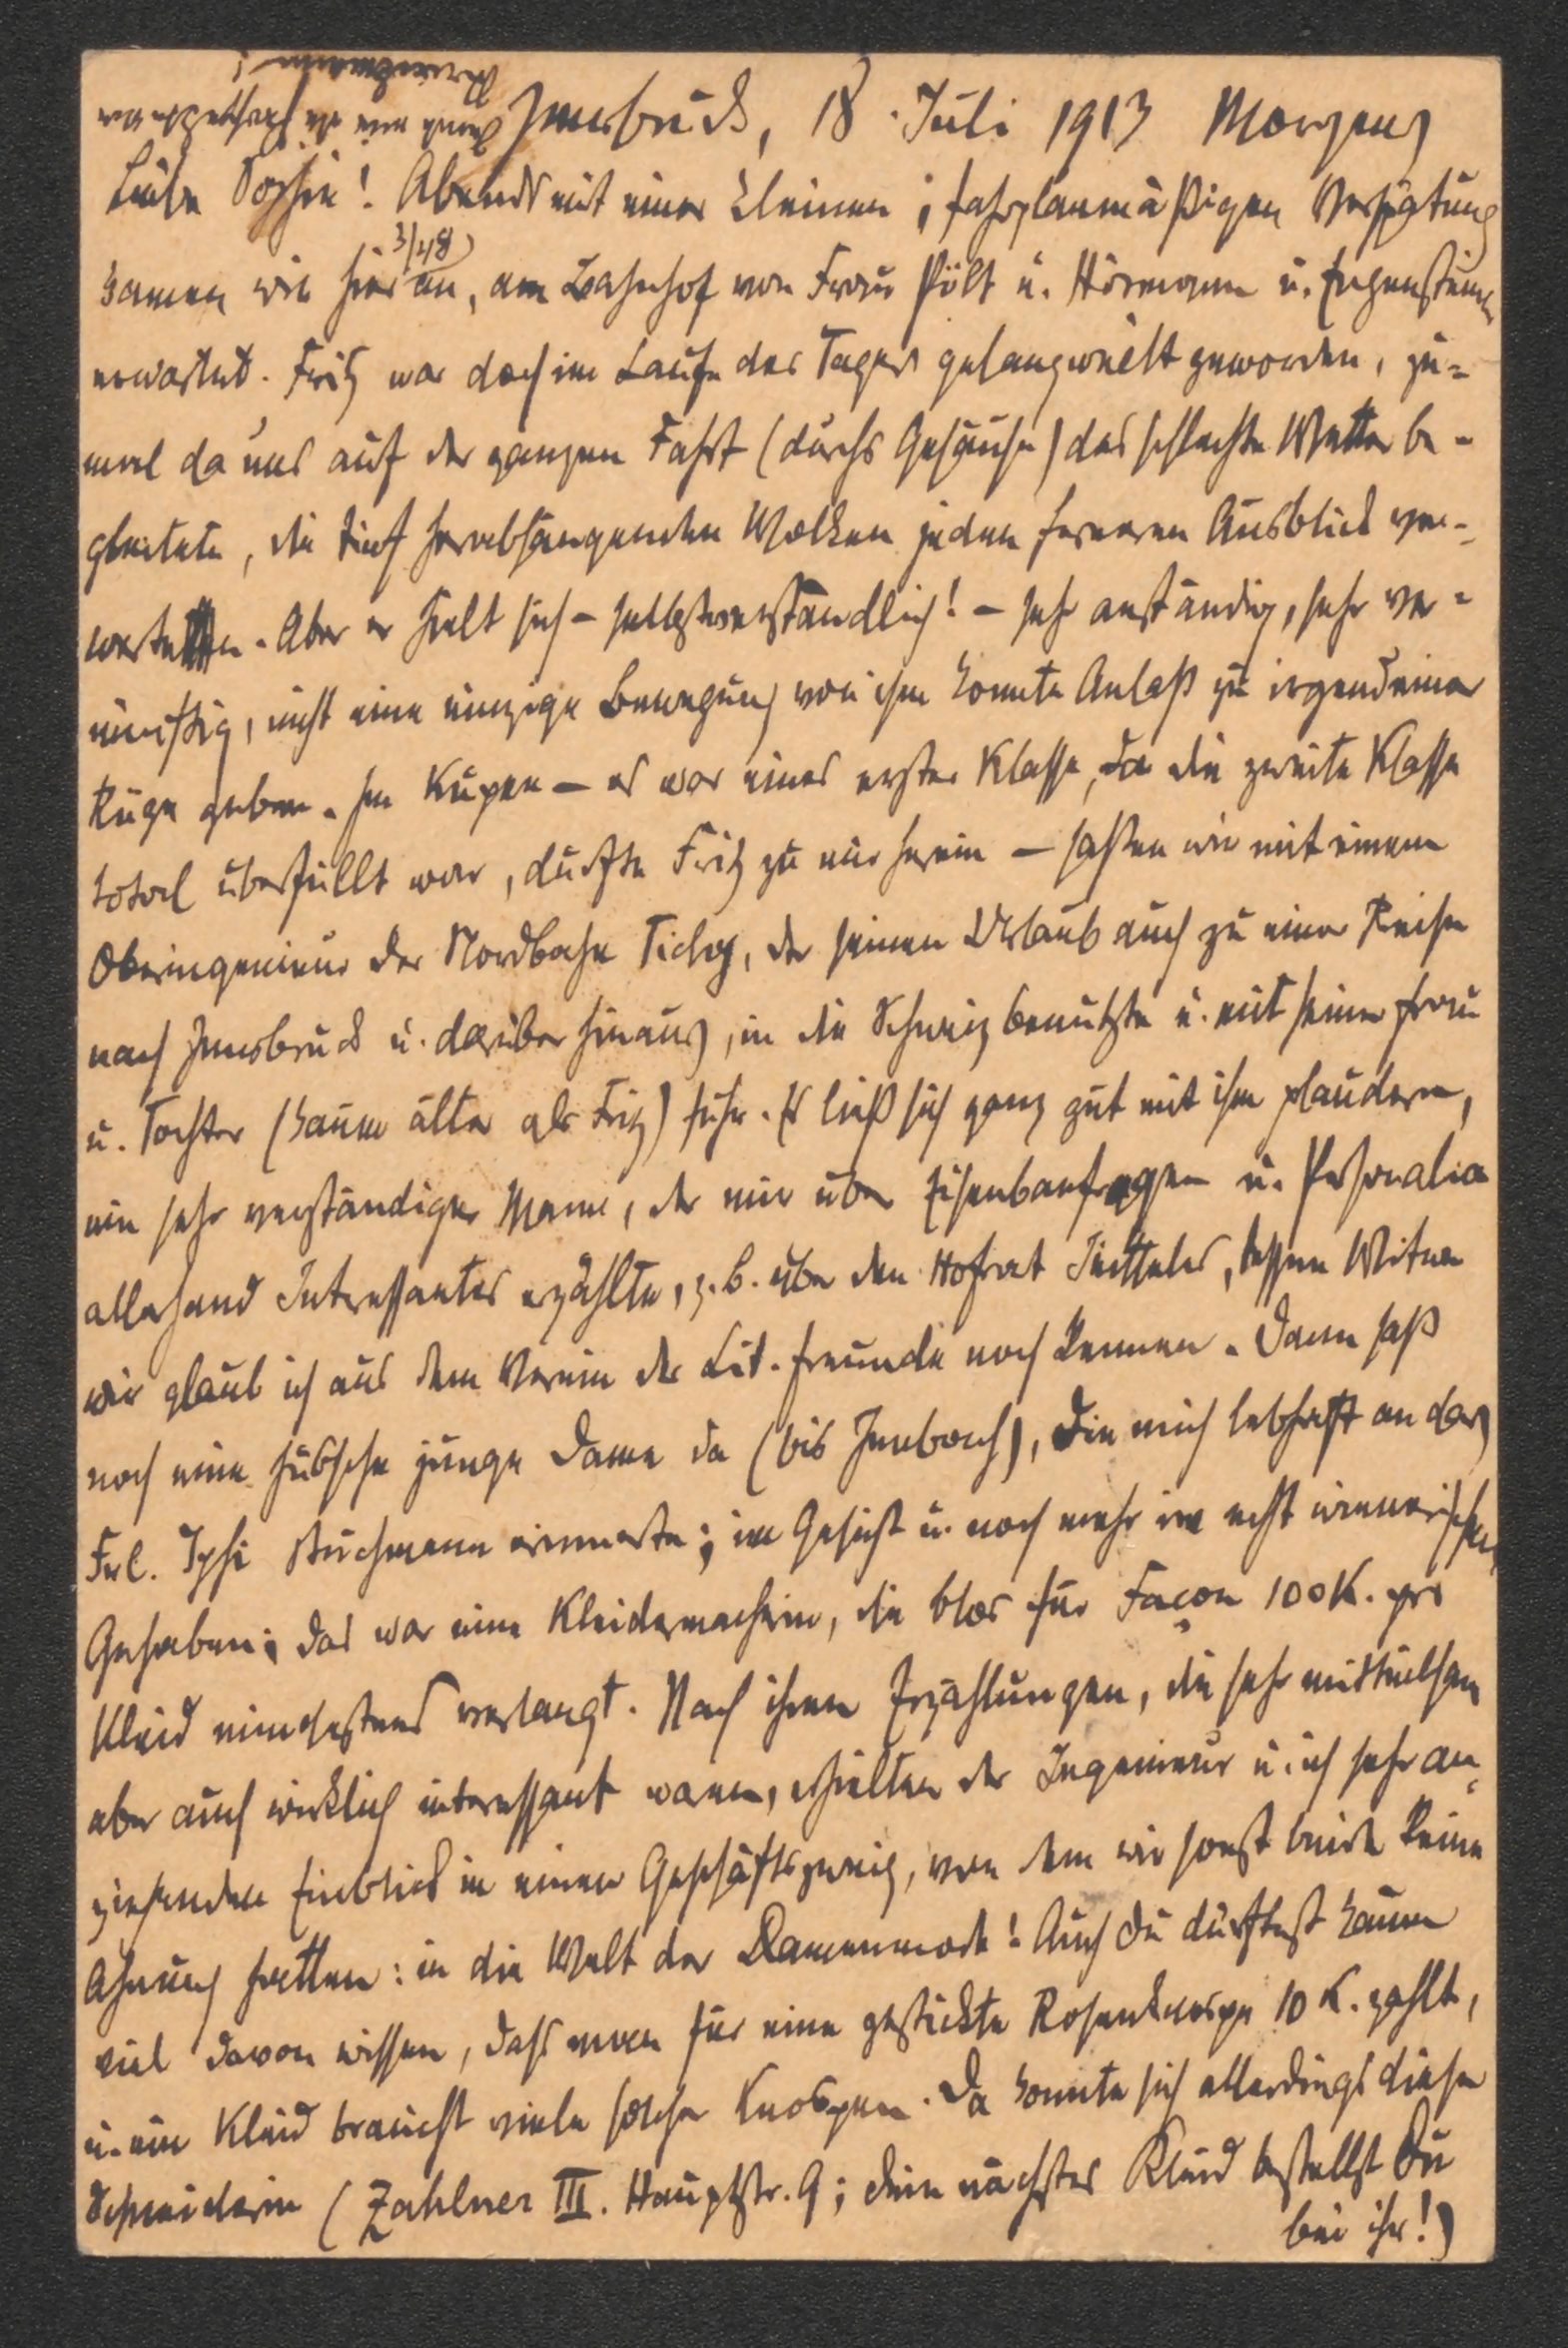 Innsbruck, 18. Juli 1913 Morgens
Liebe Sophie! Abends mit einer kleinen, fahrplanmäßigen Verspätung
kamen wir hier 3/48 an, am Bahnhof von Frau Pölt u. Hörmann u.
erwartet. Fritz war doch im Laufe des Tages gelangweilt geworden, zu-
mal da uns auf der ganzen Fahrt (durchs Gesäuse) das schlechte Wetter be-
gleitete, die tief herabhängenden Wolken jeden ferneren Ausblick ver-
wehrten. Aber er hielt sich – selbstverständlich! – sehr anständig, sehr ver-
nünftig, nicht eine einzige Bewegung von ihm konnte Anlaß zu irgendeiner
Rüge geben. Im Kupee – es war eines erster Klasse, da die zweite Klasse
total überfüllt war, durfte Fritz zu mir herein – saßen wir mit einem
Oberingenieur der Nordbahn Tichy, der seinen Urlaub auch zu einer Reise
nach Innsbruck u. darüber hinaus, in die Schweiz benutzte u. mit seiner Frau
u. Tochter (kaum älter als Fritz) fuhr. Es ließ sich ganz gut mit ihm plaudern,
ein sehr verständiger Mann, der mir über Eisenbahnfragen u. Personalia
allerhand Interessantes erzählte, z. B. über den Hofrat Jeitteles, dessen Witwe
wir glaub ich aus dem Verein der Lit. freunde noch kennen. Dann saß
noch eine hübsche junge Dame da (bis Jenbach), die mich lebhaft an das
Frl. Iphi erinnerte; im Gesicht u. noch mehr im echt wienerischen
Gehaben; das war eine Kleidermacherin, die blos für Façon 100 K. pro
Kleid mindestens verlangt. Nach ihren Erzählungen, die sehr mitteilsam
aber auch wirklich interessant waren, erhielten der Ingenieur u. ich sehr an-
ziehenden Einblick in einen Geschäftszweig, von dem wir sonst beide keine
Ahnung hatten: in die Welt der Damenmode! Auch du dürftest kaum
viel davon wissen, daß man für eine gestickte Rosenknospe 10 K. zahlt,
u. ein Kleid braucht viele solche Knospen. Da konnte sich allerdings diese
Schneiderin (Zahlner III. Hauptstr. 9; dein nächstes Kleid bestellst Du
bei ihr!)